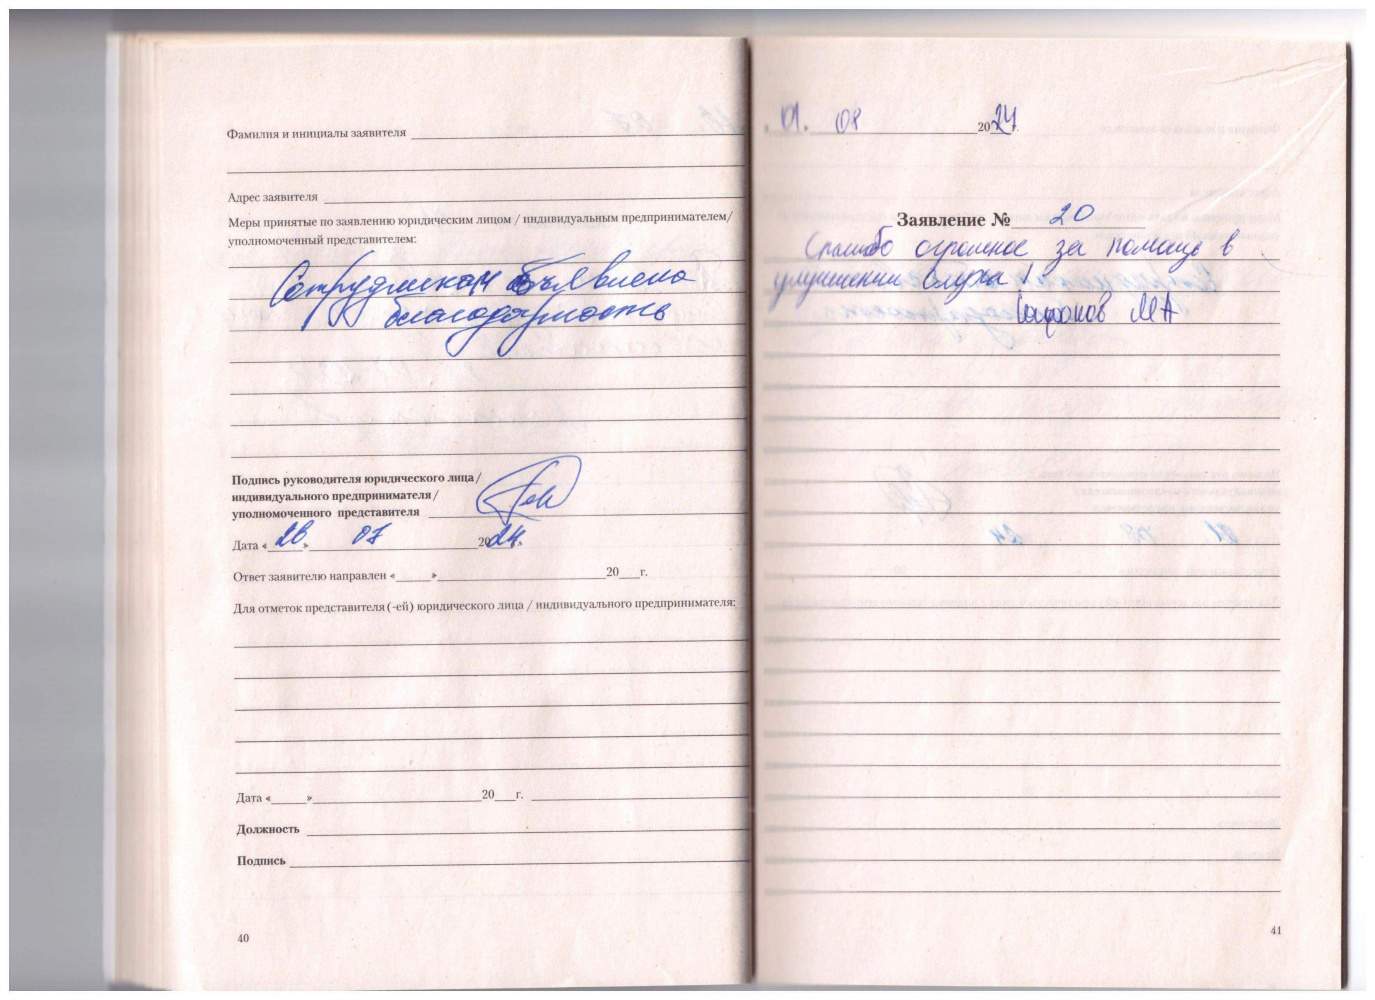 Фамилия и инициалы заявителя
Адрес заявителя
Меры принятые по заявлению юридическим лицом / индивидуальным предпринимателем/
уполномоченный представителем:
Сотрудникам объявлена
благодарность
Подпись руководителя юридического лица/
индивидуального предпринимателя/
уполномоченного представителя
Дата «26» 07 2024г.
Ответ заявителю направлен «___»___20___г.
Для отметок представителя (-ей) юридического лица / индивидуального предпринимателя:
Дата «___»___20___г.
Должность
Подпись
40
01. 08 2024г.
Заявление № 20
Спасибо огромное за помощь в
улучшении слуха!
Сафонов МА
41